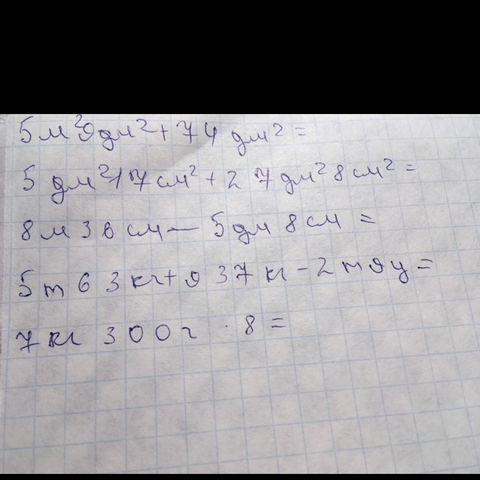 5м²9дм²+74дм²=
5дм²17см²+27дм²8см²=
8м36см-5дм8см=
5т63кг+937кг-2т9ц=
7кг300г·8=